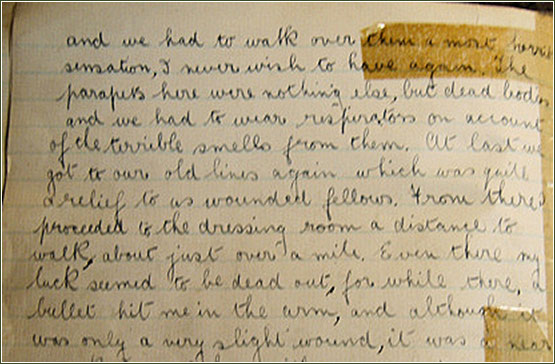 and we had to walk over them a most horri
sensation, I never wish to have again. The
parapets here were nothing else, but dead bodie
and we had to wear respirators on account
of the terrible smells from them. At last we
got to our old lines again which was quite
a relief to us wounded fellows. From there
proceeded to the dressing room a distance to
walk, about just over a mile. Even there my
luck seemed to be dead out, for while there, a
bullet hit me in the arm, and although it
was only a very slight wound, it was a near